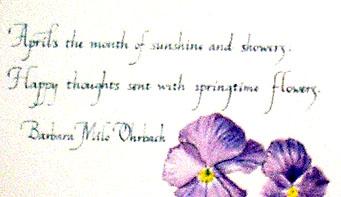 April's the month of sunshine and showers.
Happy thoughts sent with springtime flowers.
Barbara Milo Ohrbach